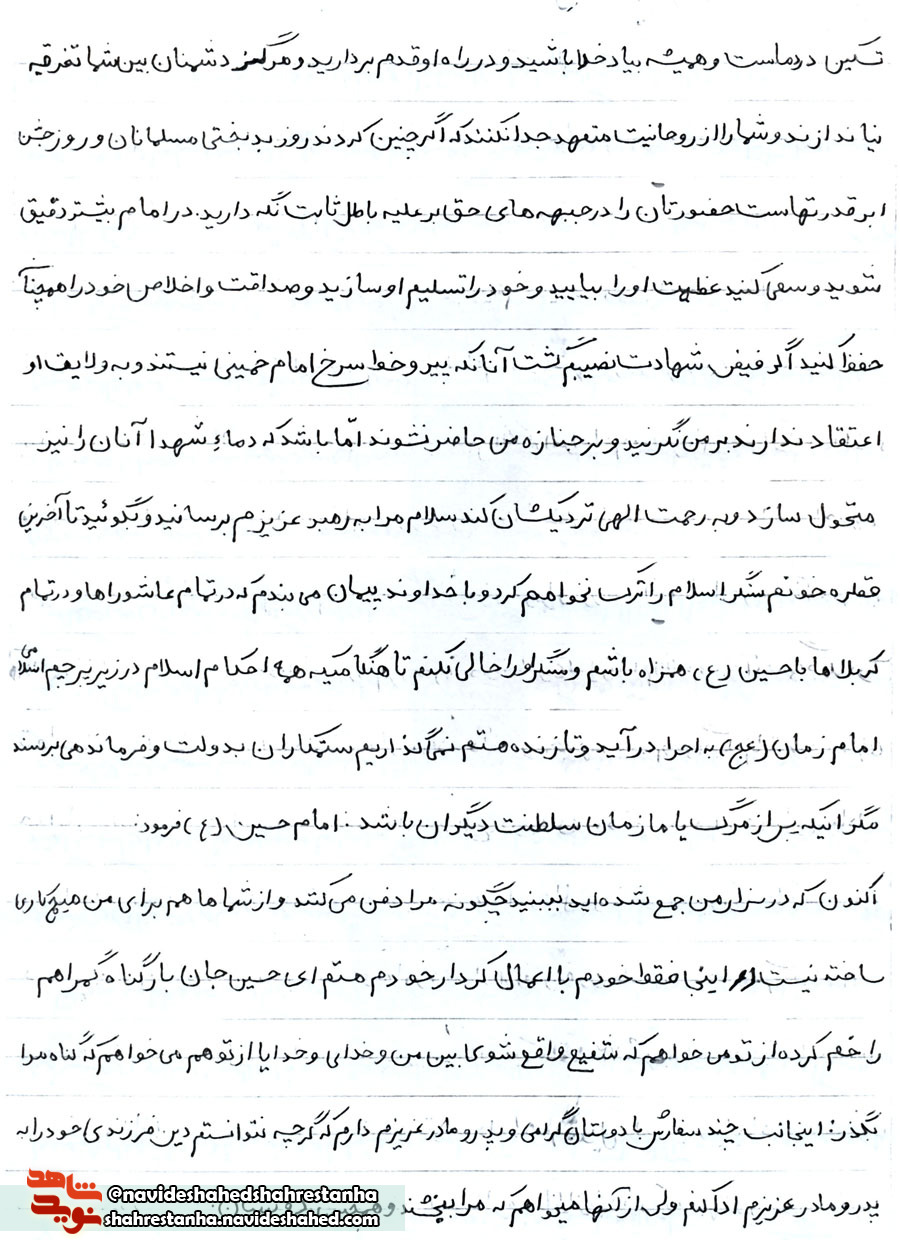 تسکین درد ماست و همیشه بیاد خدا باشید و در راه او قدم بردارید و هرگز دشمنان بین شما تفرقه
نیاندازند و شما را از روحانیت متعهد جدا نکنند که اگر چنین کردند روز بدبختی مسلمانان و روز جشن
ابرقدرتهاست حضورتان را در جبهه های حق بر علیه باطل ثابت نگه دارید. در امام بیشتر دقیق
شوید و سعی کنید عظمت او را بیابید و خود را تسلیم او سازید و صداقت و اخلاص خود را همچنان
حفظ کنید اگر فیض شهادت نصیبم گشت آنانکه پیرو خط سرخ امام خمینی نیستند و به ولایت او
اعتقاد ندارند بر من نگریند و بر جنازه من حاضر نشوند امّا باشد که دماء شهدا آنان را نیز
متحول سازد و به رحمت الهی نزدیکشان کند سلام مرا به رهبر عزیزم برسانید و بگوئید تا آخرین
قطره خونم سنگر اسلام را ترک نخواهم کرد و با خداوند پیمان می بندم که در تمام عاشوراها و در تمام
کربلاها با حسین (ع) همراه باشم و سنگر او را خالی نکنم تا هنگامیکه همه احکام اسلام در زیر پرچم اسلامی
امام زمان (عج) به اجرا درآید و تا زنده هستم نمی گذاریم ستمکاران بدولت و فرماندهی برسند
مگر آنیکه پس از مرگ یا ما زمان سلطنت دیگران باشد. امام حسین (ع) فرمود:
اکنون که در مزار من جمع شده اید ببینید چگونه مرا دفن می کنند و از شماها هم برای من هیچ کاری
ساخته نیست اینجا فقط خودم با اعمال کردار خودم هستم ای حسین جان بار گناه کمرم هم
را خم کرده از تو می خواهم که شفیع واقع شوی بین من و خدای و خدایا از تو هم می خواهم که گناه مرا
بگذر: اینجانب چند سفارش با دوستان گرامی و پدر و مادر عزیزم دارم که گرچه نتوانستم دین فرزندی خود را به
پدر و مادر عزیزم ادا کنم ولی از آنها میخواهم که مرا ببخشند و همچنین دوستان
شاهد
نوید
@navideshahedshahrestanha
shahrestanha.navideshahed.com